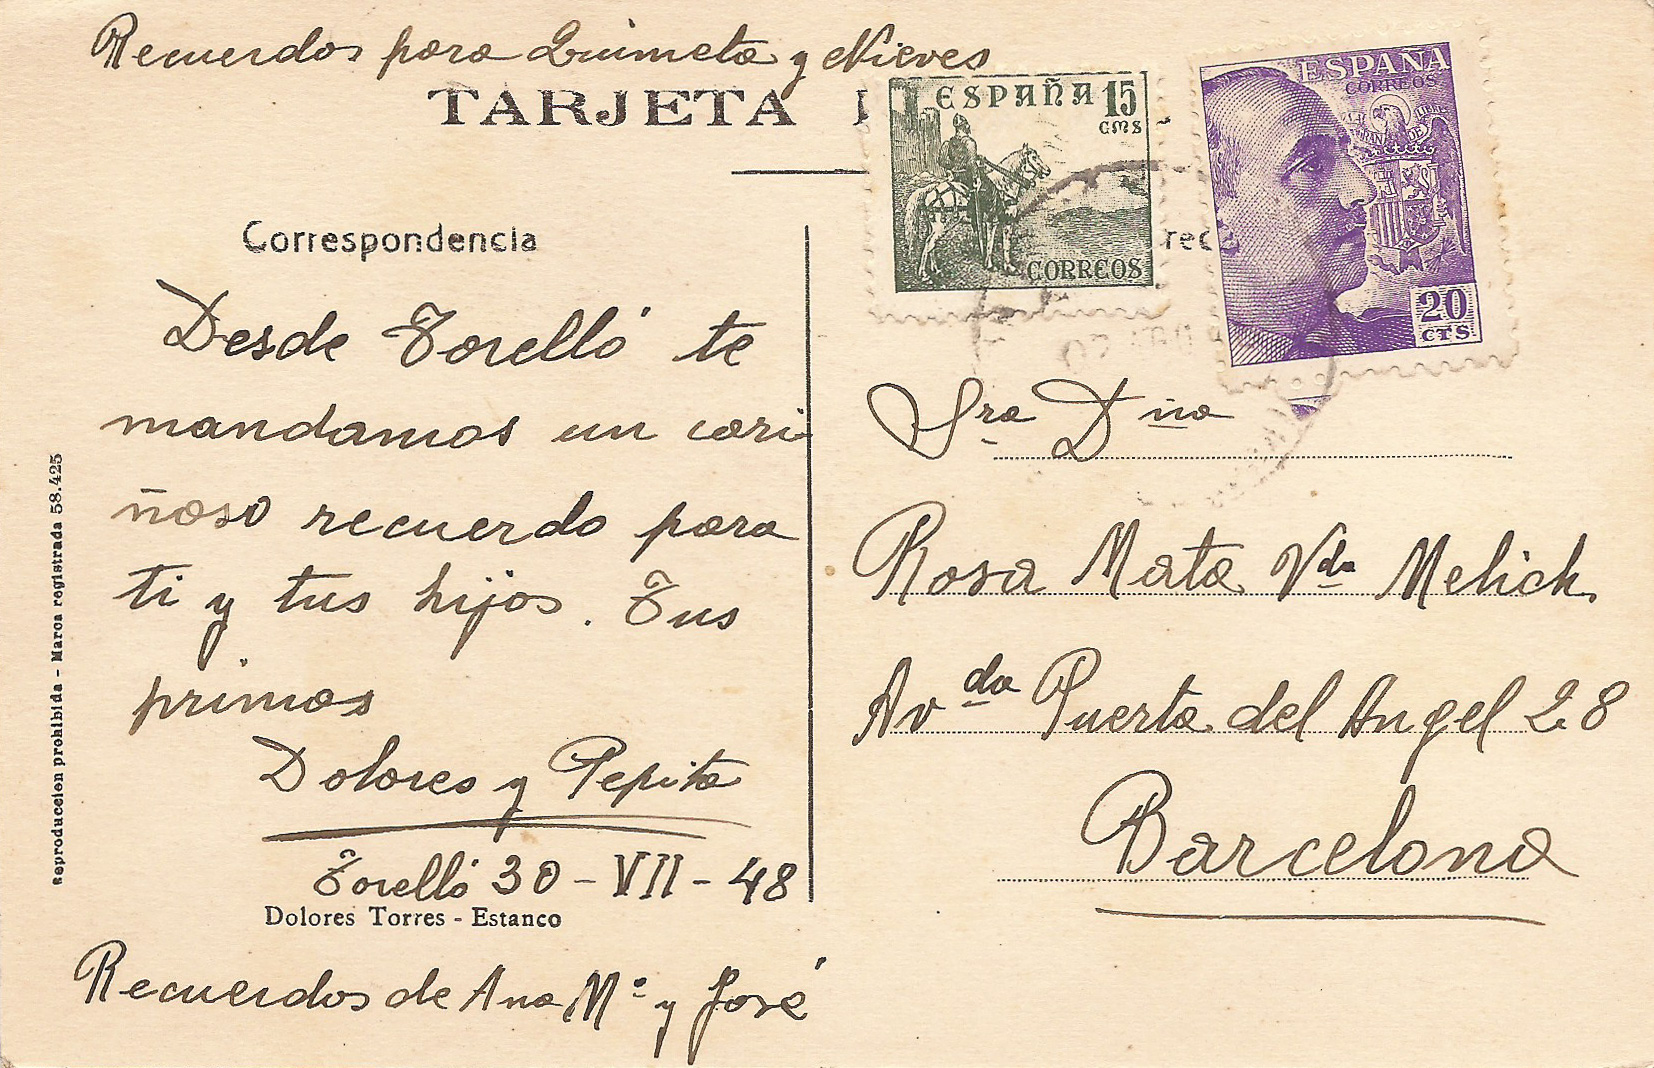 Recuerdos para Quimeta y Nieves
TARJETA
ESPAÑA 15
CMS
CORREOS
ESPAÑA
CORREOS
20
CTS
Correspondencia
Desde Torelló te
mandamos un cari
ñoso recuerdo para
ti y tus hijos. Tus
primas
Dolores y Pepita
Torelló 30-VII-48
Dolores Torres - Estanco
Recuerdos de Ana Mª y José
Reproduccion prohibida - Marca registrada 58.425
Sra Dña
Rosa Mata Vda Melich.
Avda Puerta del Angel 28
Barcelona